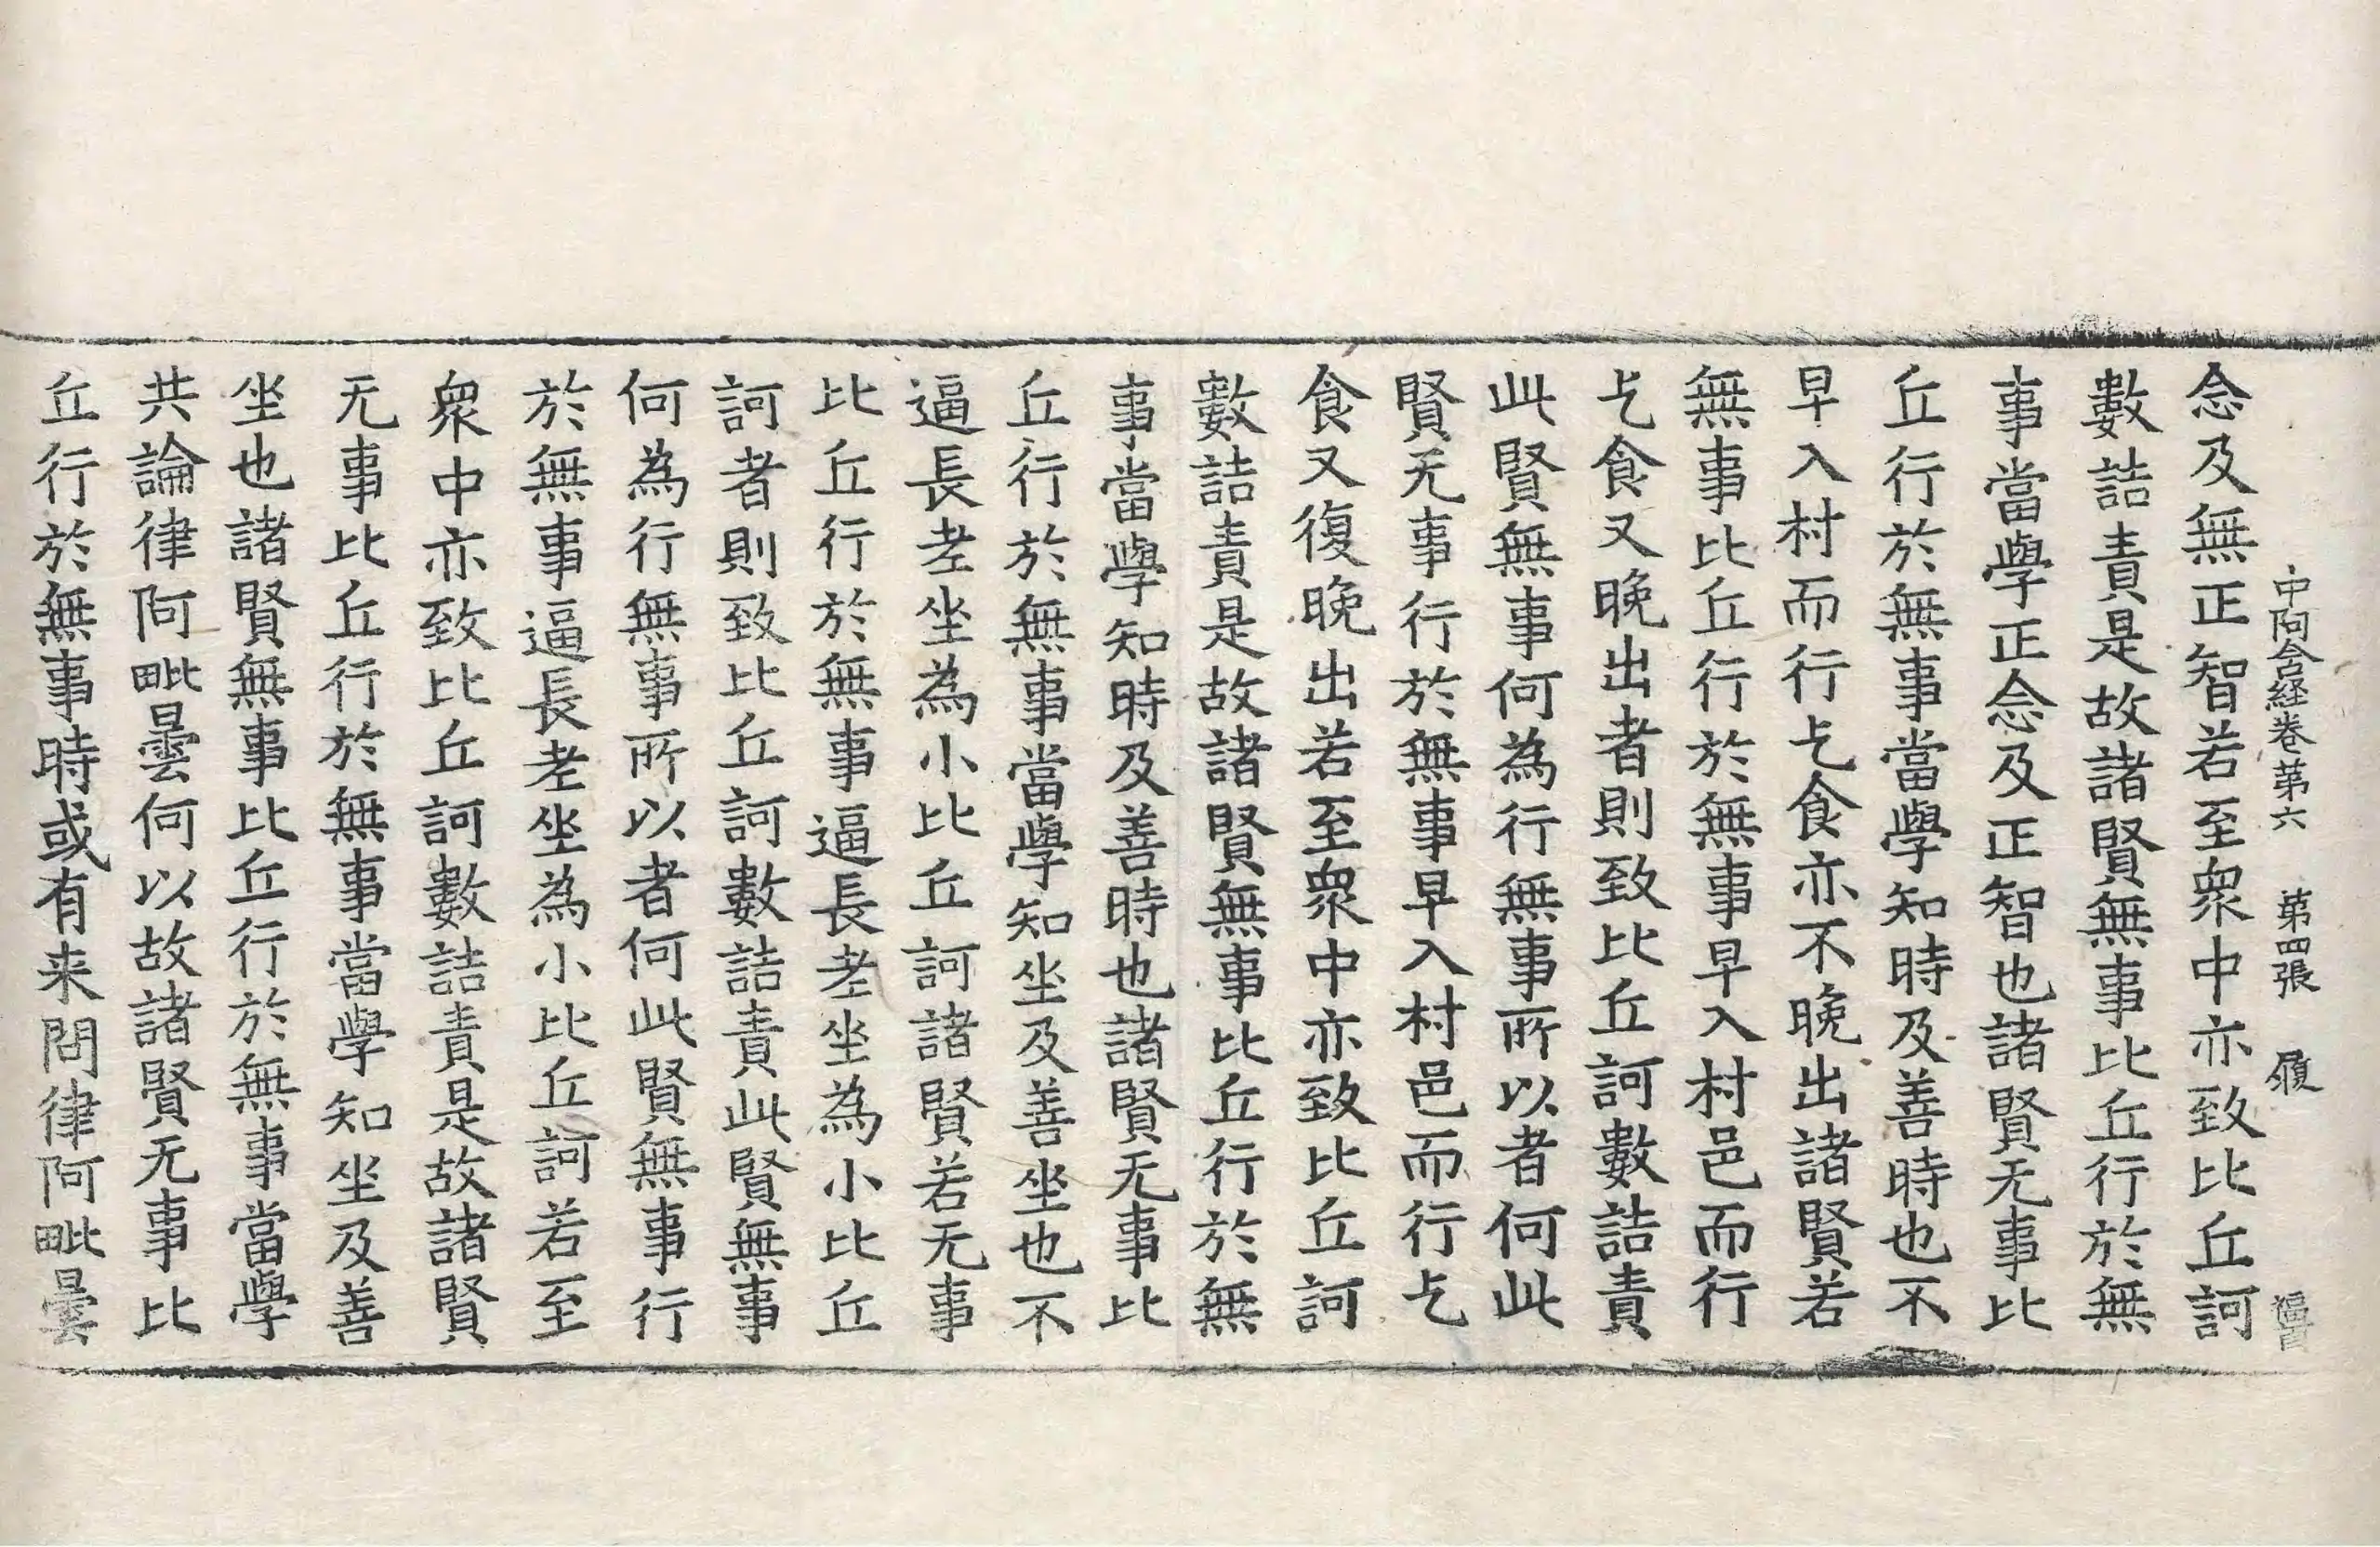 中阿含経卷苐六 苐四張 履
念及無正智若至衆中亦致比丘訶
數詰責是故諸賢無事比丘行於無
事當學正念及正智也諸賢无事比
丘行於無事當學知時及善時也不
早入村而行乞食亦不晚出諸賢若
無事比丘行於無事早入村邑而行
乞食又晚出者則致比丘訶數詰責
此賢無事何為行無事所以者何此
賢无事行於無事早入村邑而行乞
食又復晚出若至衆中亦致比丘訶
數詰責是故諸賢無事比丘行於無
事當學知時及善時也諸賢无事比
丘行於無事當學知坐及善坐也不
逼長老坐為小比丘訶諸賢若无事
比丘行於無事逼長老坐為小比丘
訶者則致比丘訶數詰責此賢無事
何為行無事所以者何此賢無事行
於無事逼長老坐為小比丘訶若至
衆中亦致比丘訶數詰責是故諸賢
无事比丘行於無事當學知坐及善
坐也諸賢無事比丘行於無事當學
共論律阿毗曇何以故諸賢无事比
丘行於無事時或有来問律阿毗曇